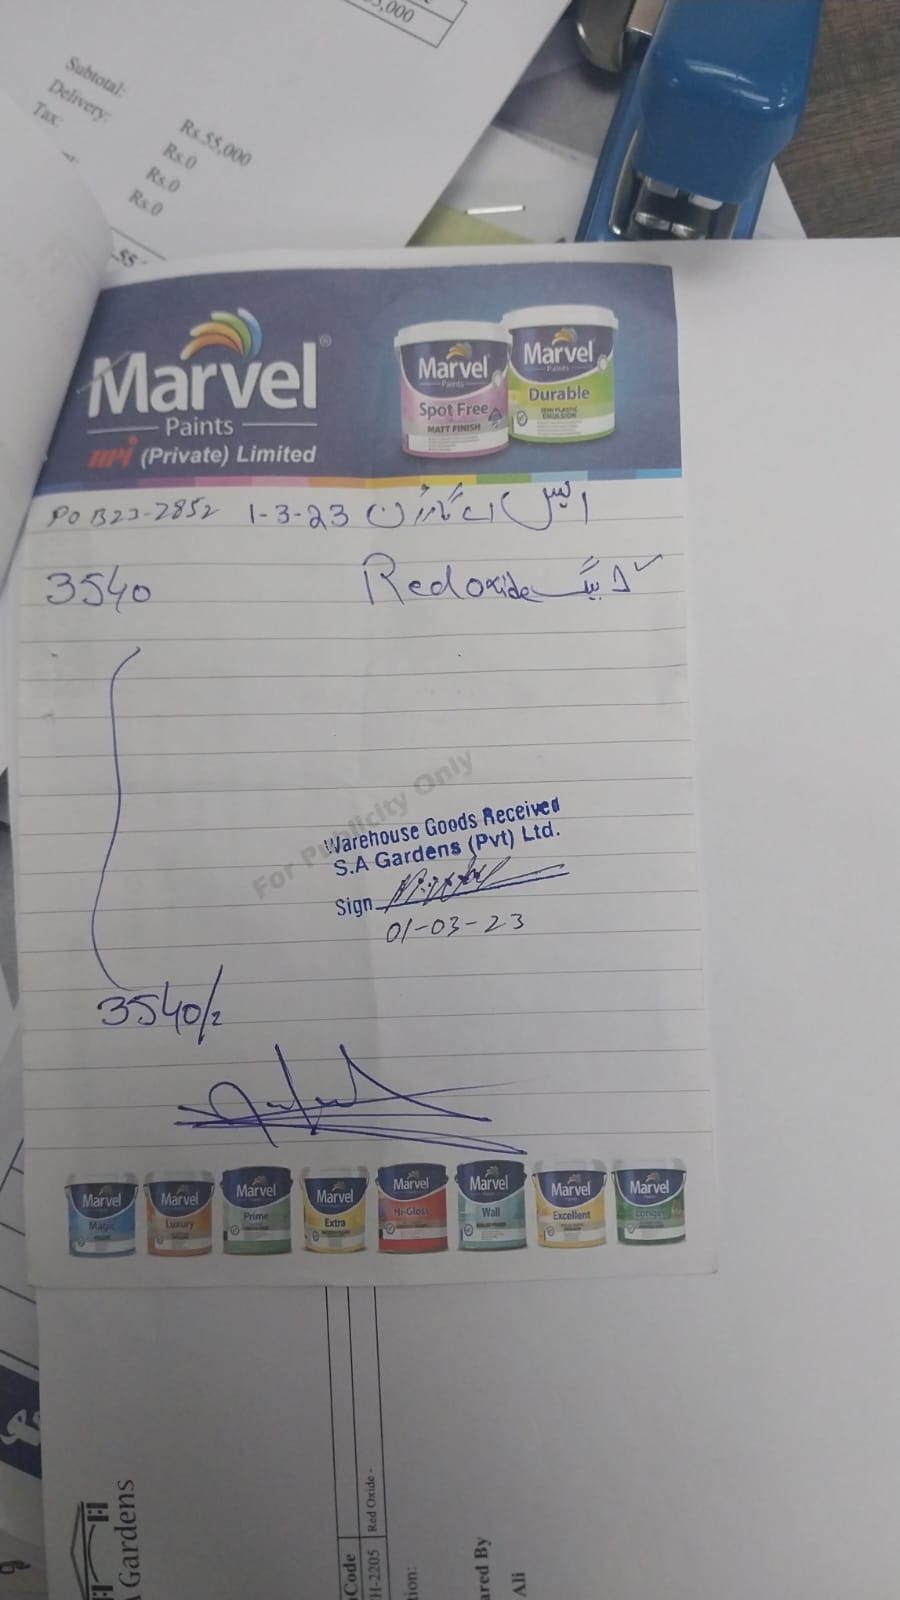 5,000
Subtotal:
Delivery:
Tax:
Rs.55,000
Rs.0
Rs.0
Rs.0
Marvel
Paints
mpi (Private) Limited
Marvel
Paints
Spot Free
MATT FINISH
Marvel
Paints
Durable
SEMI PLASTIC
EMULSION
PO B23-2852 1-3-23 ایس اے گارڈن
3540 Red oxide بیگ 1
For Publicity Only
Warehouse Goods Received
S.A Gardens (Pvt) Ltd.
Sign
01-03-23
3540/=
Marvel
Magic
Marvel
Luxury
Marvel
Prime
Marvel
Extra
Marvel
Hi-Gloss
Marvel
Wall
Marvel
Excellent
Marvel
Longer
Gardens
Code
H-2205
Red Oxide -
tion:
ared By
Ali